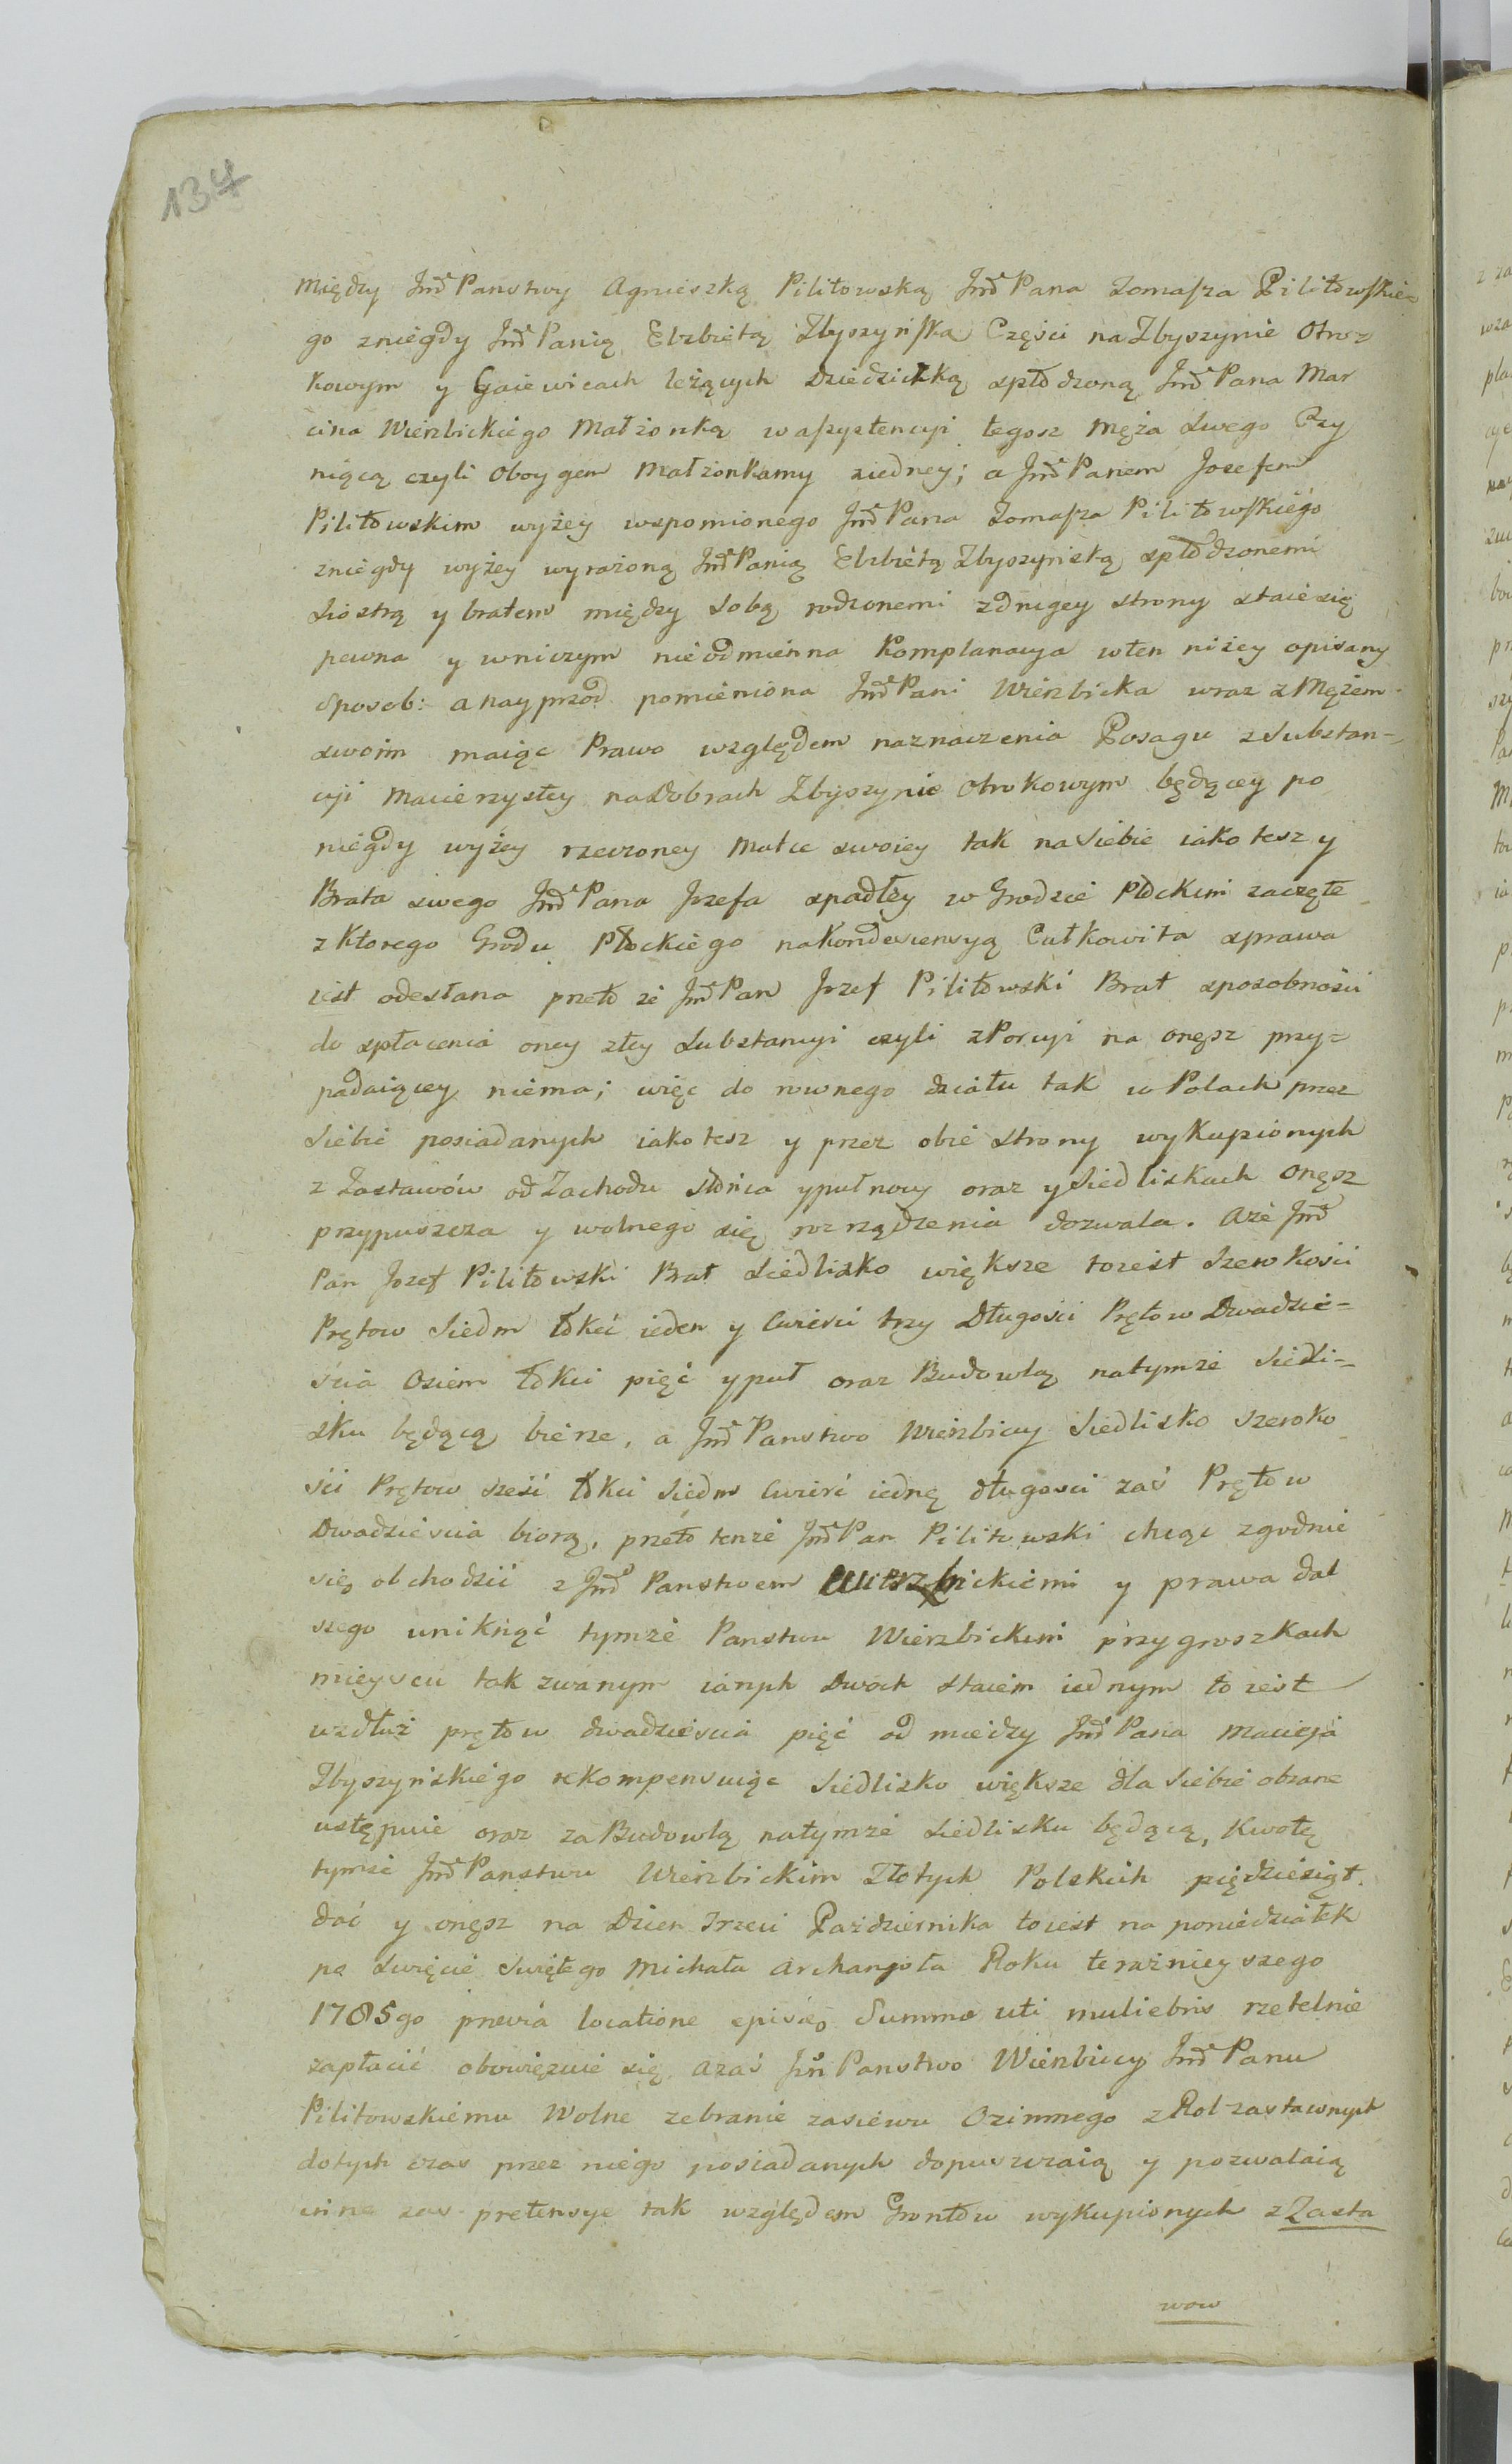 134
Między Jmć Panstwy Agnieszką Pilitowską Jmć Pana Tomasza Pilitowskie
go zniegdy Jmć Panią Elzbietą Zbyszyńską Części na Zbyszynie Otro=
kowym y Gaiewicach leżących Dziedziczką spłodzoną Jmć Pana Mar
cina Wierzbickiego Małżonką w assystencyi tegosz Męża Swego Czy
niącą czyli Oboygem Małżonkamy ziedney; a Jmć Panem Jozefem
Pilitowskim wyżey wspomionego Jmć Pana Tomasza Pilitowskiégo
zniegdy wyżey wyrażoną Jmć Panią Elzbietą Zbyszyńską spłodzonemi
Siostrą y bratem między Sobą rodzonemi zdrugey strony staie się
pewna y wniczym nieodmienna Komplanacya wten niżey opisany
Sposob: a nayprzod pomieniona Jmć Pani Wierzbicka wraz z Mężem
swoim maiąc Prawo względem naznaczenia Posagu z Substan=
cyi Macierzystey na Dobrach Zbyszynie Otrokowym będącey po
niegdy wyżey rzeczoney Matce swoiey tak na Siebie iako tesz y
Brata swego Jmć Pana Jozefa spadłey w Grodzie Płockim zaczęte
z ktorego Grodu Płockiego na Kondescensyą Całkowita sprawa
iest odesłana przeto że Jmć Pan Jozef Pilitowski Brat sposobności
do spłacenia oney złey Substancyi czyli z Porcyi na onęsz przy=
padaiącey niema; więc do rownego działu tak w Polach przez
Siebie posiadanych iako tesz y przez obie Strony wykupionych
z Zastawów od Zachodu Słońca y pułnocy oraz y Siedliskach Onęsz
przypuszcza y wolnego się rozrządzenia dozwala. Aże Jmć
Pan Jozef Pilitowski Brat Siedlisko większe toiest Szerokości
Prętow Siedm Łokć ieden y Cwierci trzy Długości Prętow Dwadzie=
ścia Osiem Łokci pięć y puł oraz Budowlą natymże Siedli=
sku będącą bierze, a Jmć Panstwo Wierzbiccy Siedlisko Szeroko
ści Prętow sześć Łokci Siedm Cwierć iednę długości zaś Prętow
Dwadzieścia biorą, przeto tenże Jmć Pan Pilitowski chcąc zgodnie
się obchodzić z Jmć Panstwem Wierzbickiemi y prawa dal
szego uniknąć tymże Panstwu Wierzbickim przygroszkach
mieyscu tak zwanym Dwoch staiem iednym to iest
wzdłuż prętow dwadzieścia pięć od miedzy Jmć Pana Macieja
Zbyszyńskiego rekompensuiąc Siedlisko większe dla Siebie obrane
ustępuie oraz za Budowlą natymże Siedlisku będącą, Kwotę
tymże Jmć Panstwu Wierzbickim Złotych Polskich pięćdziesiąt
dać y onęsz na Dzien Trzeci Pazdziernika toiest na poniedziałek
po Swięcie Swiętego Michała Archanjoła Roku terazniejszego
1785go prævia locatione Summa uti muliebris rzetelnie
zapłacić obowięzuie się. Azaś Jmć Panstwo Wierzbiccy Jmć Panu
Pilitowskiemu Wolne zebranie zasiewu Ozimnego z Rol zastawnych
dotych czas przez niego posiadanych dopuszczaią y pozwalaią
inne zas pretensye tak względem Grontow wykupionych z Zasta
wow